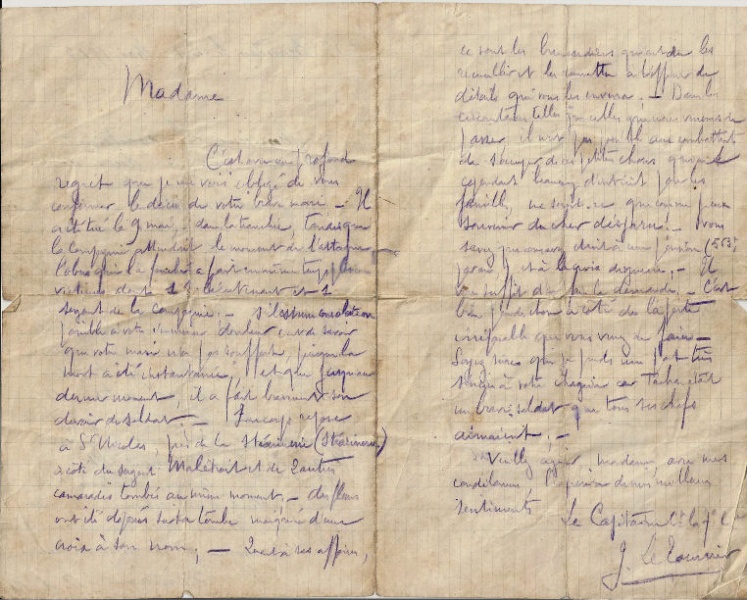 Madame
C'est avec un profond
regret que je me vois obligé de vous
confirmer le décès de votre mari – Il
a été tué le 9 mai, dans la tranchée, tandis que
la Compagnie attendait le moment de l'attaque –
l'obus qui l'a a fait en même temps
victimes dont 1 lieutenant et 1
sergent de la Compagnie. – S'il est une consolation
possible à votre douleur de savoir
que votre mari n'a pas souffert, puisque la
mort a été instantanée, et que jusqu'au
dernier moment, il a fait bravement son
devoir de soldat – Son corps repose
à St Nicolas, près de la Stéarinerie (Stéarinerie)
à côté du sergent et de 2 autres
camarades tombés au même moment, – des fleurs
ont été déposées sur sa tombe d'une
croix à son nom; – Quant à ses affaires,
ce sont les brancardiers qui ont dû les
recueillir et les remettre à l'officier de
détails qui vous les enverra; – Dans les
circonstances telles que celles que nous venons de
passer, il n'est pas possible aux combattants
de songer à ces petites choses qui ont
cependant beaucoup d'intérêt pour les
familles, ne soit-ce que comme
souvenir du cher disparu! – Vous
savez que vous avez droit à une pension (563f
par an) et à la –. Il
vous suffit d'en faire la demande. – C'est
bien peu de chose à côté de la perte
irréparable que vous venez de faire –
Soyez sûre que je prends une part très
sincère à votre chagrin car était
un brave soldat que tous ses chefs
aimaient; –
Veuillez agréer, madame, avec mes
condoléances, l'expression de mes meilleurs
sentiments
Le Capitaine Ct la Cie
J. Le